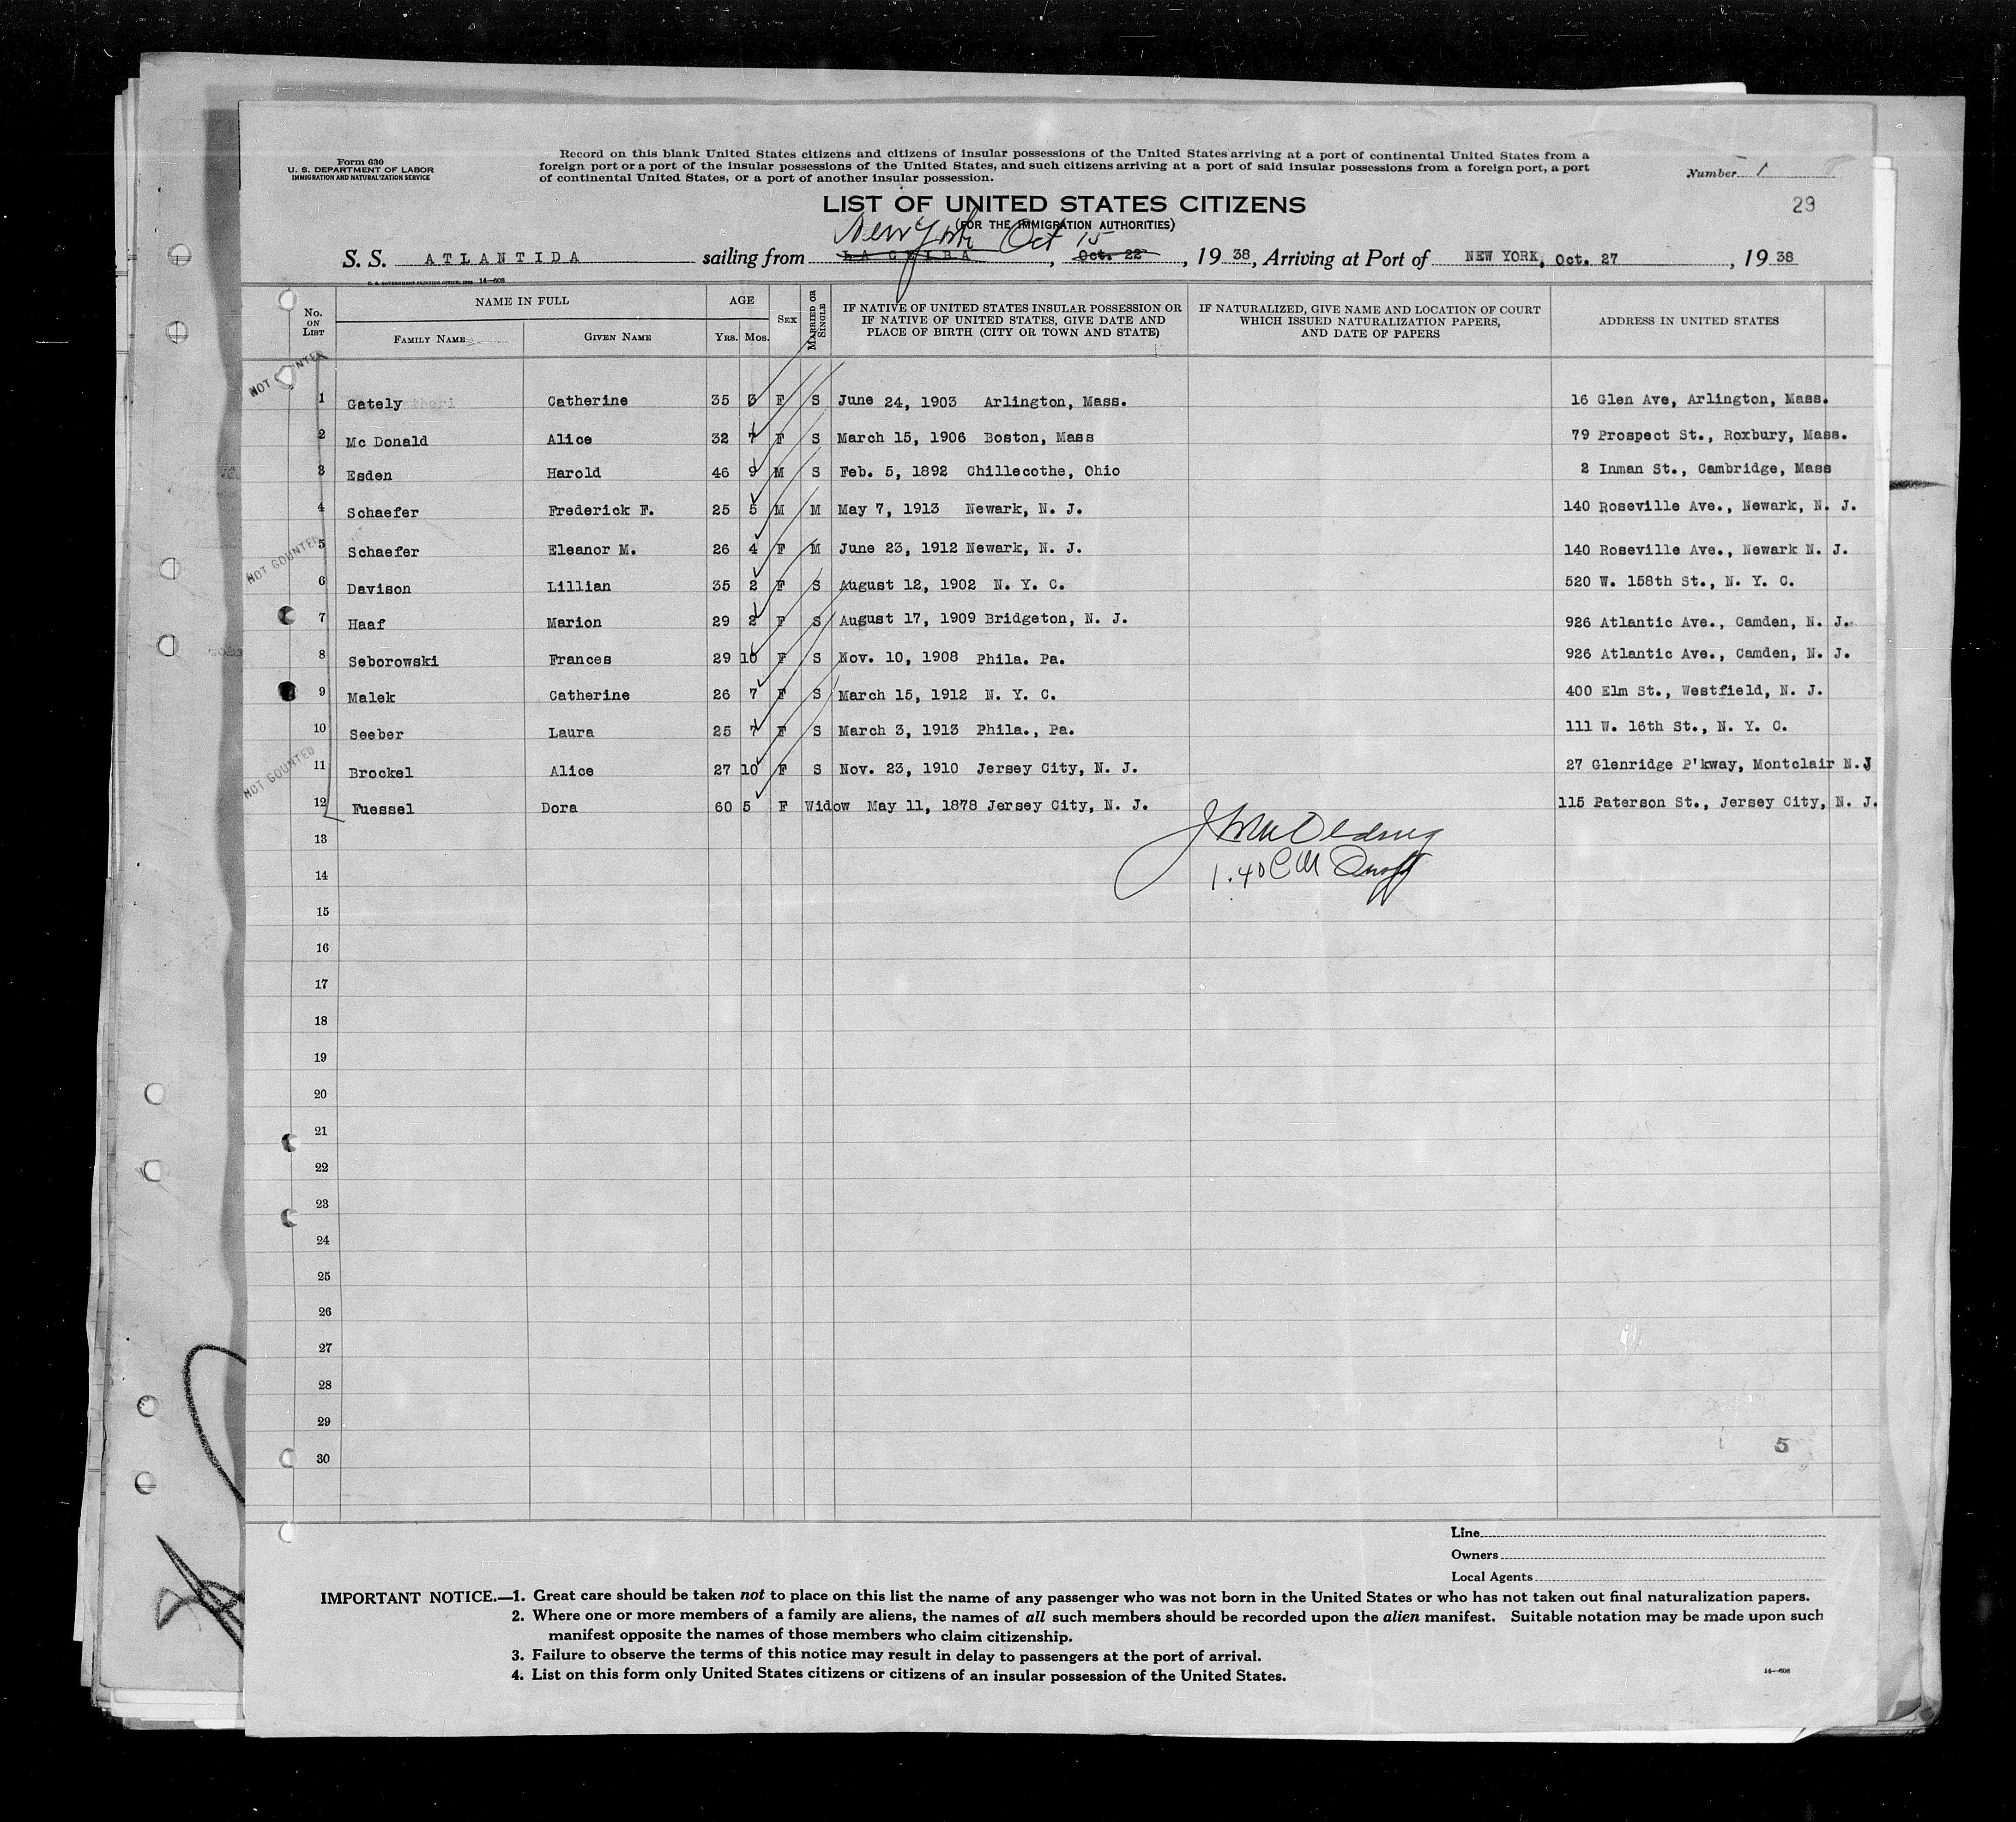 Form 630
U. S. DEPARTMENT OF LABOR
IMMIGRATION AND NATURALIZATION SERVICE
Record on this blank United States citizens and citizens of insular possessions of the United States arriving at a port of continental United States from a
foreign port or a port of the insular possessions of the United States, and such citizens arriving at a port of said insular possessions from a foreign port, a port
of continental United States, or a port of another insular possession.
Number 1
29
LIST OF UNITED STATES CITIZENS
(FOR THE IMMIGRATION AUTHORITIES)
New York Oct 15
S. S. ATLANTIDA sailing from LA CEIBA, Oct. 22, 19 38, Arriving at Port of NEW YORK, Oct. 27, 19 38
U. S. GOVERNMENT PRINTING OFFICE 14—608
No. ON LIST NAME IN FULL FAMILY NAME GIVEN NAME AGE YRS. MOS. SEX MARRIED OR SINGLE IF NATIVE OF UNITED STATES INSULAR POSSESSION OR IF NATIVE OF UNITED STATES, GIVE DATE AND PLACE OF BIRTH (CITY OR TOWN AND STATE) IF NATURALIZED, GIVE NAME AND LOCATION OF COURT WHICH ISSUED NATURALIZATION PAPERS, AND DATE OF PAPERS ADDRESS IN UNITED STATES
NOT COUNTED
1 Gately Catherine 35 3 F S June 24, 1903 Arlington, Mass. 16 Glen Ave, Arlington, Mass.
2 Mc Donald Alice 32 7 F S March 15, 1906 Boston, Mass 79 Prospect St., Roxbury, Mass.
3 Esden Harold 46 9 M S Feb. 5, 1892 Chillecothe, Ohio 2 Inman St., Cambridge, Mass
4 Schaefer Frederick F. 25 5 M M May 7, 1913 Newark, N. J. 140 Roseville Ave., Newark, N. J.
NOT COUNTED
5 Schaefer Eleanor M. 26 4 F M June 23, 1912 Newark, N. J. 140 Roseville Ave., Newark N. J.
6 Davison Lillian 35 2 F S August 12, 1902 N. Y. C. 520 W. 158th St., N. Y. C.
7 Haaf Marion 29 2 F S August 17, 1909 Bridgeton, N. J. 926 Atlantic Ave., Camden, N. J.
8 Seborowski Frances 29 10 F S Nov. 10, 1908 Phila. Pa. 926 Atlantic Ave., Camden, N. J.
9 Malek Catherine 26 7 F S March 15, 1912 N. Y. C. 400 Elm St., Westfield, N. J.
10 Seeber Laura 25 7 F S March 3, 1913 Phila., Pa. 111 W. 16th St., N. Y. C.
NOT COUNTED
11 Brockel Alice 27 10 F S Nov. 23, 1910 Jersey City, N. J. 27 Glenridge P'kway, Montclair N.J
12 Fuessel Dora 60 5 F Widow May 11, 1878 Jersey City, N. J. 115 Paterson St., Jersey City, N. J.
13
14 1.40
15
16
17
18
19
20
21
22
23
24
25
26
27
28
29
5
30
Line
Owners
Local Agents
IMPORTANT NOTICE.—1. Great care should be taken not to place on this list the name of any passenger who was not born in the United States or who has not taken out final naturalization papers.
2. Where one or more members of a family are aliens, the names of all such members should be recorded upon the alien manifest. Suitable notation may be made upon such
manifest opposite the names of those members who claim citizenship.
3. Failure to observe the terms of this notice may result in delay to passengers at the port of arrival.
4. List on this form only United States citizens or citizens of an insular possession of the United States.
14—608